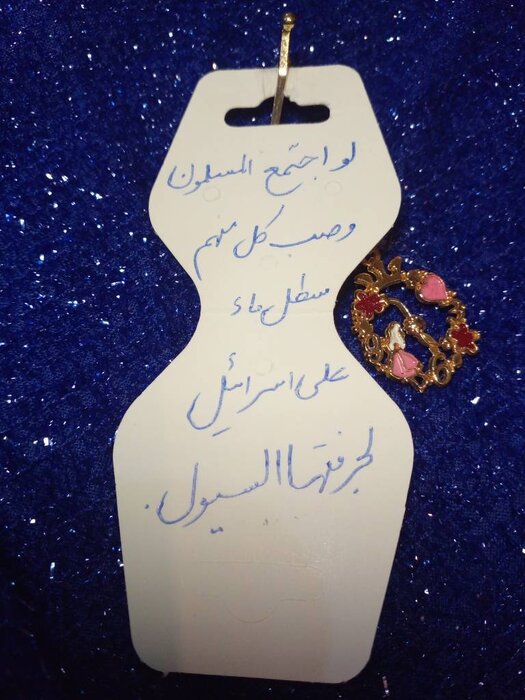 لو اجتمع المسلمون
وصب كل منهم
سطل ماء
على اسرائيل
لجرفتها السيول.